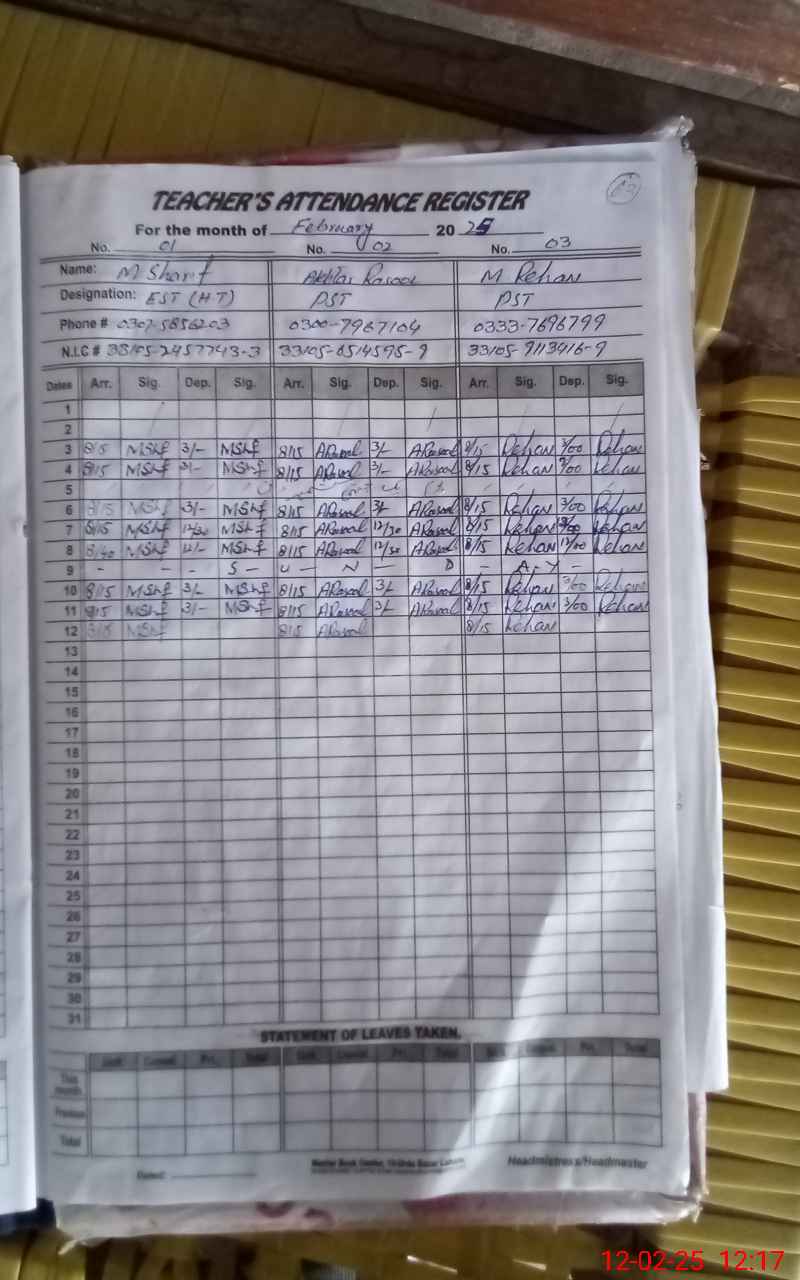 63
TEACHER'S ATTENDANCE REGISTER
For the month of February 2025
No. 01 No. 02 No. 03
Name: M Sharif Akhtar Rasool M Rehan
Designation: EST (H.T) PST PST
Phone # 0307-5856203 0300-7967104 0333-7696799
N.I.C # 33105-2457743-3 33105-6514595-9 33105-9113416-9
Dates Arr. Sig. Dep. Sig. Arr. Sig. Dep. Sig. Arr. Sig. Dep. Sig.
1
2
3 8/15 MShf 3/- MShf 8/15 ARasool 3/- ARasool 8/15 Rehan 3/00 Rehan
4 8/15 MShf 3/- MShf 8/15 ARasool 3/- ARasool 8/15 Rehan 3/00 Rehan
5
6 8/15 MShf 3/- MShf 8/15 ARasool 3/- ARasool 8/15 Rehan 3/00 Rehan
7 8/15 MShf 12/30 MShf 8/15 ARasool 12/30 ARasool 8/15 Rehan Rehan
8 MShf MShf 8/15 ARasool 12/30 ARasool 8/15 Rehan 12/00 Rehan
9 - - S - U - N - D - A - Y -
10 8/15 MShf 3/- MShf 8/15 ARasool 3/- ARasool 8/15 Rehan 3/00 Rehan
11 8/15 MShf 3/- MShf 8/15 ARasool 3/- ARasool 8/15 Rehan 3/00 Rehan
12 8/15 MShf 8/15 ARasool 8/15 Rehan
13
14
15
16
17
18
19
20
21
22
23
24
25
26
27
28
29
30
31
STATEMENT OF LEAVES TAKEN.
Total Total Total
This month
Previous
Total
Dated: Headmistress/Headmaster
12-02-25 12:17